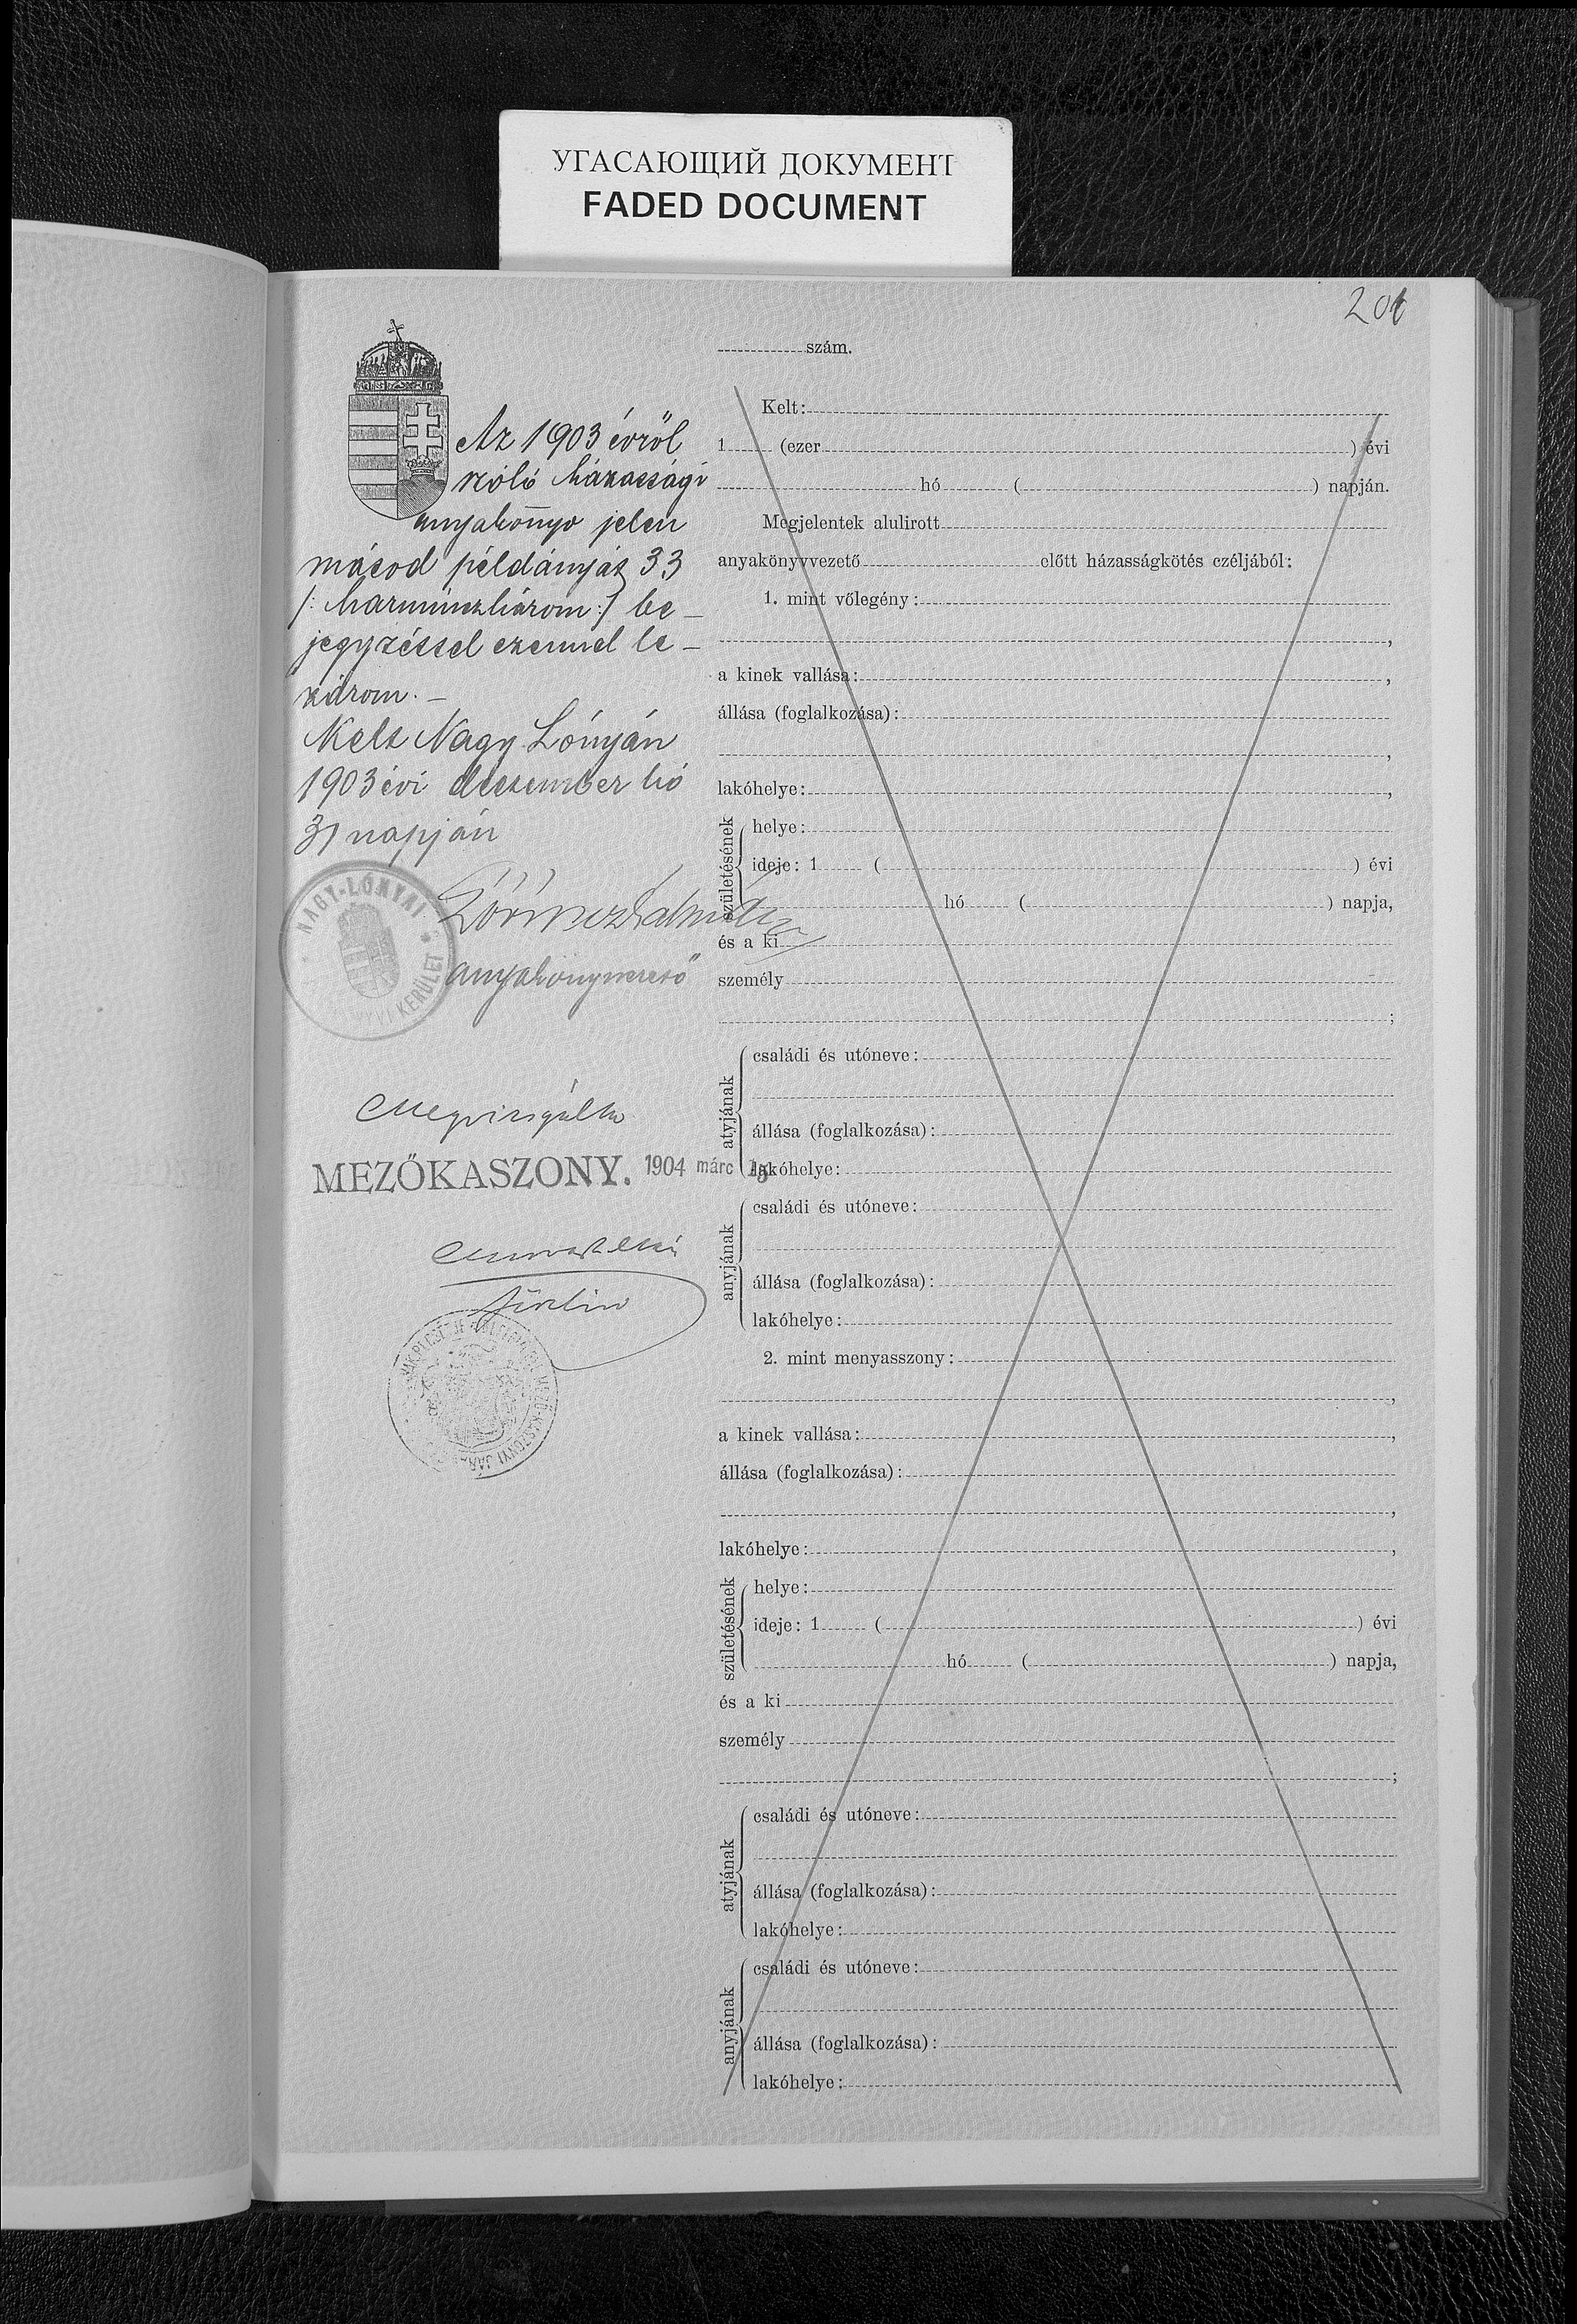 УГАСАЮЩИЙ ДОКУМЕНТ
FADED DOCUMENT
201
Az 1903 évről
szóló házassági
anyakönyv jelen
másod példányát 33
/: harminczhárom :/ be-
jegyzéssel ezennel le-
zárom. -
Kelt Nagy Lónyán
1903 évi deczember hó
31 napján
NAGY-LÓNYAI
KERÜLET
Lőrincz Kálmán
anyakönyvvezető
Megvizsgálta
MEZŐKASZONY. 1904 márc 15
szám.
Kelt:
1 (ezer ) évi
hó ( ) napján.
Megjelentek alulirott
anyakönyvvezető előtt házasságkötés czéljából:
1. mint vőlegény:
,
a kinek vallása: ,
állása (foglalkozása):
,
lakóhelye: ,
születésének
helye:
ideje: 1 ( ) évi
hó ( ) napja,
és a ki
személy
;
atyjának
családi és utóneve:
állása (foglalkozása):
lakóhelye:
anyjának
családi és utóneve:
állása (foglalkozása):
lakóhelye:
2. mint menyasszony:
,
a kinek vallása: ,
állása (foglalkozása):
,
lakóhelye: ,
születésének
helye:
ideje: 1 ( ) évi
hó ( ) napja,
és a ki
személy
;
atyjának
családi és utóneve:
állása (foglalkozása):
lakóhelye:
anyjának
családi és utóneve:
állása (foglalkozása):
lakóhelye: